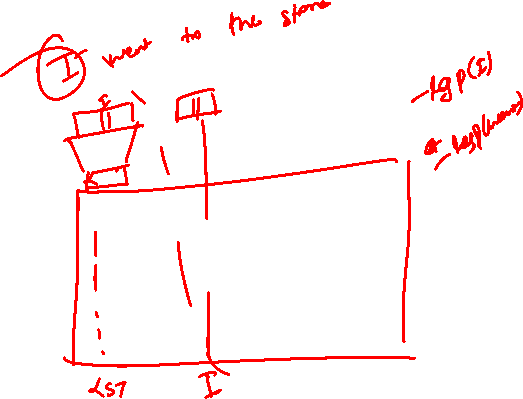 I went to the store
-log p(I)
-log p(went)
I
<S>
I